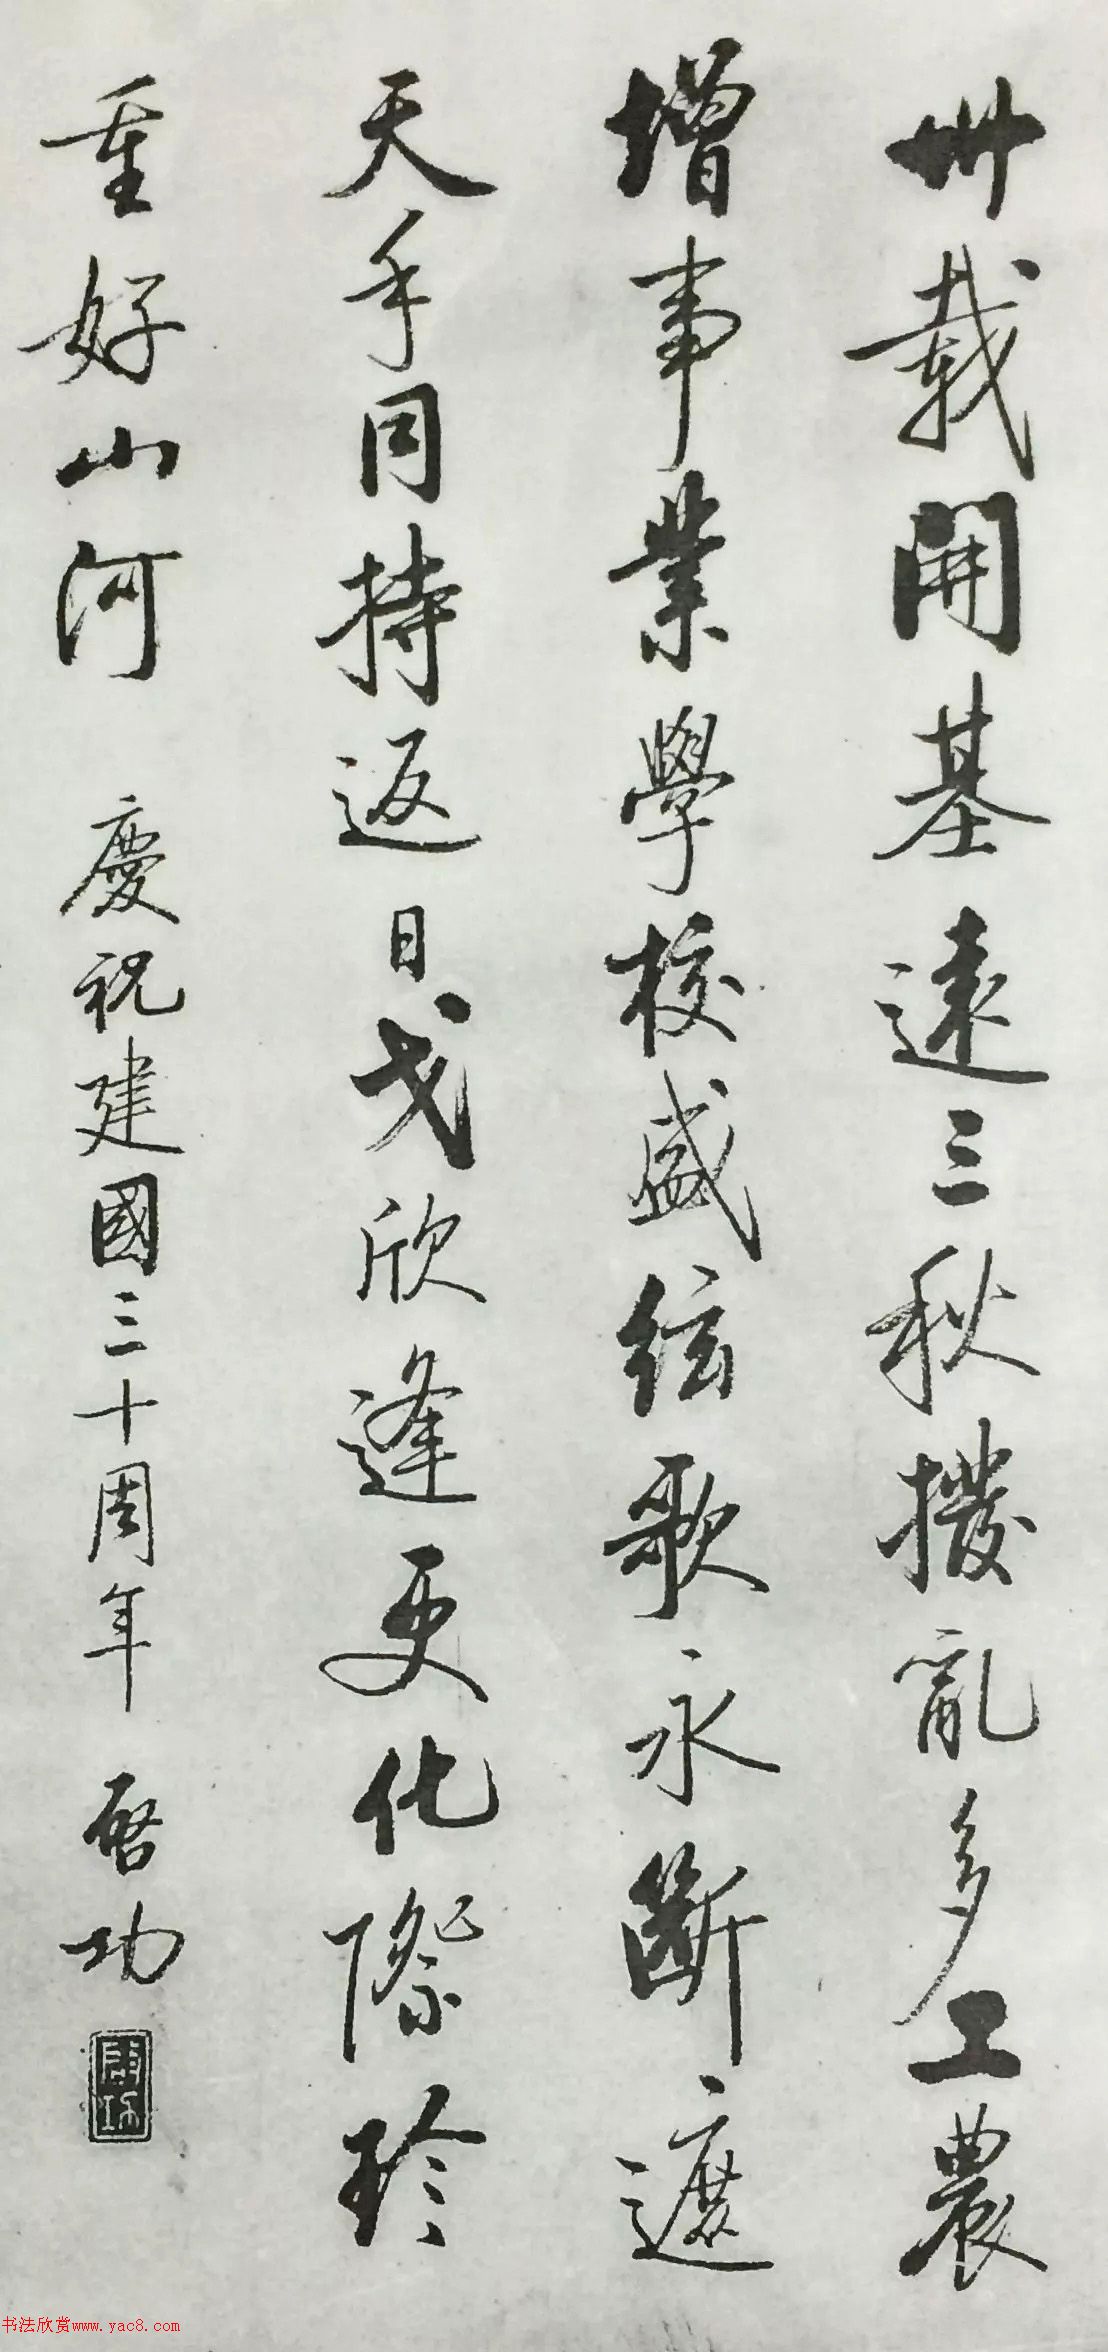 卅載開基遠三秋撥亂多工農
增事業學校盛絃歌永斷遮
天手同持返日戈欣逢更化際珍
重好山河 慶祝建國三十周年 啓功
启功
书法欣赏www.yac8.com